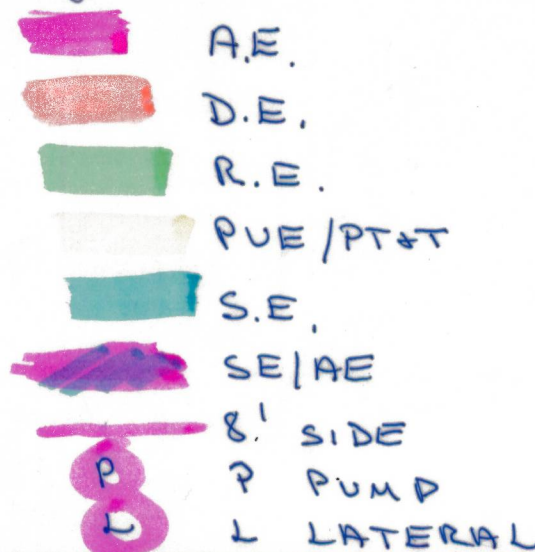 A.E.
D.E.
R.E.
PUE/PT&T
S.E.
SE/AE
8' SIDE
P P PUMP
L L LATERAL